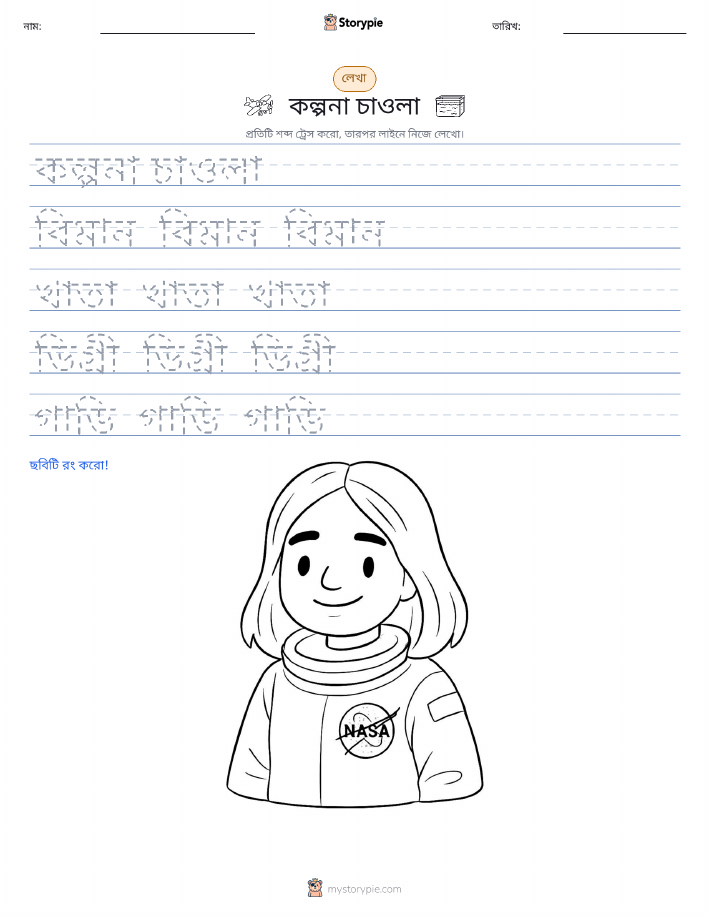 নাম:
Storypie
তারিখ:
লেখা
কল্পনা চাওলা
প্রতিটি শব্দ ট্রেস করো, তারপর লাইনে নিজে লেখো।
কল্পনা চাওলা
বিমান বিমান বিমান
খাতা খাতা খাতা
ডিগ্রী ডিগ্রী ডিগ্রী
গাড়ি গাড়ি গাড়ি
ছবিটি রং করো!
NASA
mystorypie.com